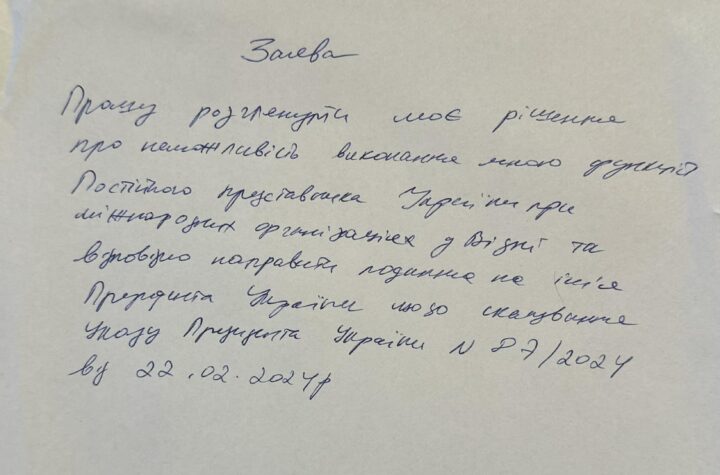 Заява
Прошу розглянути моє рішення
про неможливість виконання мною функцій
Постійного представника України при
міжнародних організаціях у Відні та
відповідно направити подання на ім'я
Президента України щодо скасування
Указу Президента України N 87/2024
від 22.02.2024р